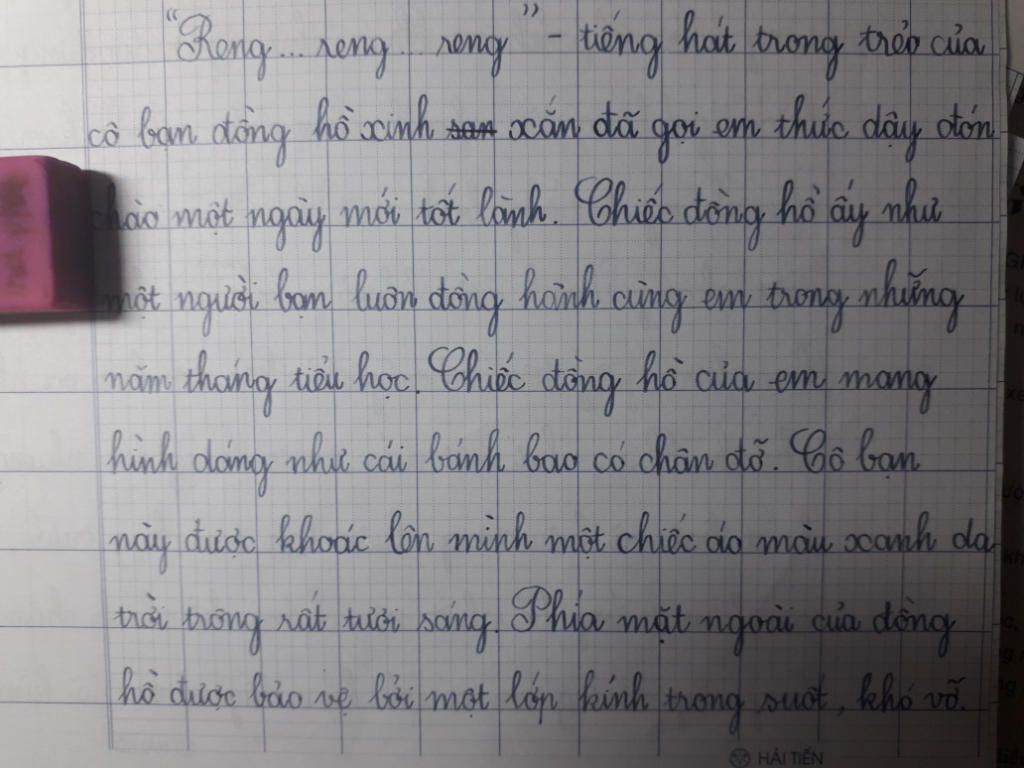 "Reng... reng... reng" - tiếng hát trong trẻo của
cô bạn đồng hồ xinh xan xắn đã gọi em thức dậy đón
chào một ngày mới tốt lành. Chiếc đồng hồ ấy như
một người bạn luôn đồng hành cùng em trong những
năm tháng tiểu học. Chiếc đồng hồ của em mang
hình dáng như cái bánh bao có chân đỡ. Cô bạn
này được khoác lên mình một chiếc áo màu xanh da
trời trông rất tươi sáng. Phía mặt ngoài của đồng
hồ được bảo vệ bởi một lớp kính trong suốt, khó vỡ.
HẢI TIẾN